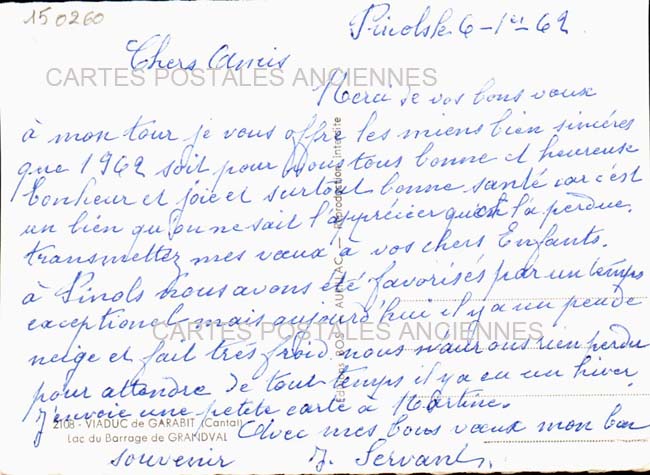 150260
Pinols le 6-1er-62
Chers Amis
CARTES POSTALES ANCIENNES
Merci de vos bons vœux
à mon tour je vous offre les miens bien sincères
que 1962 soit pour vous tous bonne et heureuse
bonheur et joie et surtout bonne santé car c'est
un bien qu'on ne sait l'apprécier qu'on l'a perdue.
transmettez mes vœux à vos chers Enfants.
à Pinols nous avons été favorisés par un temps
exceptionel mais aujourd'hui il y a un peu de
CARTES POSTALES ANCIENNES
neige et fait très froid nous n'aurons rien perdu
pour attendre de tout temps il y a eu un hiver
J'envoie une petite carte à Martine.
2108 - VIADUC de GARABIT (Cantal)
Lac du Barrage de GRANDVAL
Avec mes bons vœux mon bon
souvenir J. Servant
Editions AURILLAC — Reproduction interdite